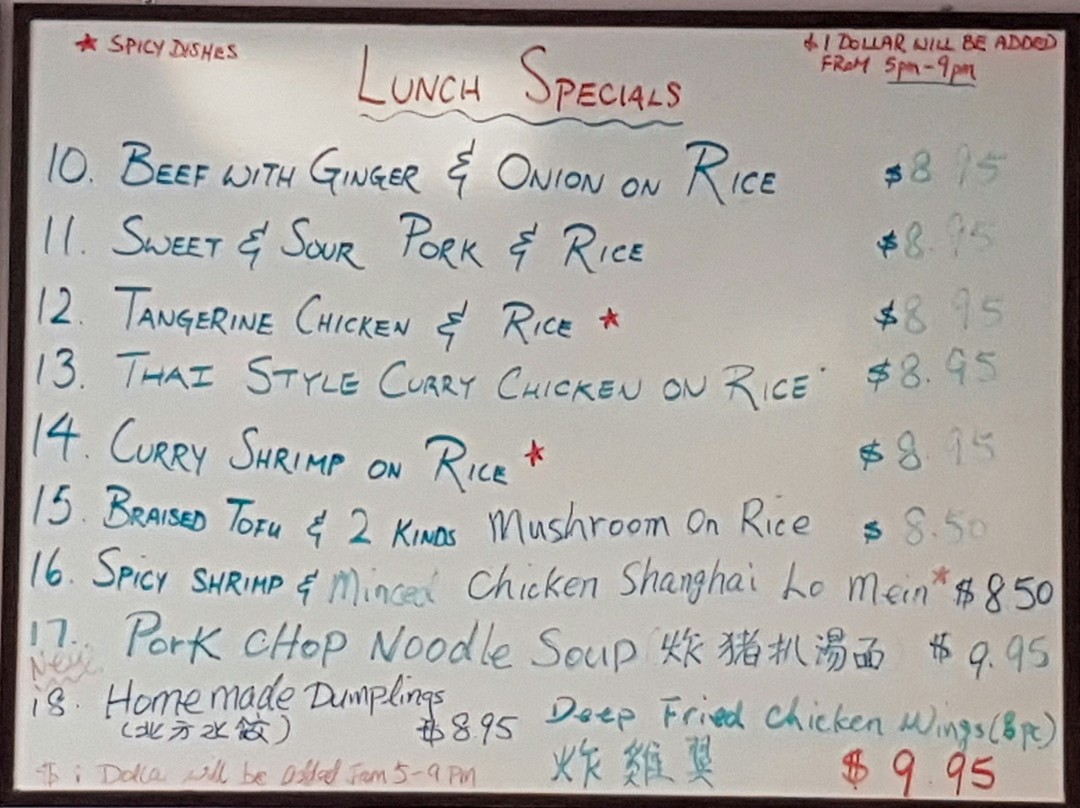 ★ SPICY DISHES
$1 DOLLAR WILL BE ADDED
FROM 5pm-9pm
LUNCH SPECIALS
10. BEEF WITH GINGER & ONION ON RICE $8.95
11. SWEET & SOUR PORK & RICE $8.95
12. TANGERINE CHICKEN & RICE ★ $8.95
13. THAI STYLE CURRY CHICKEN ON RICE $8.95
14. CURRY SHRIMP ON RICE ★ $8.95
15. BRAISED TOFU & 2 KINDS Mushroom On Rice $8.50
16. SPICY SHRIMP & Minced Chicken Shanghai Lo Mein ★ $8.50
17. Pork CHop Noodle Soup 炸豬扒湯面 $9.95
New
18. Homemade Dumplings
(北方水餃) $8.95
Deep Fried Chicken Wings (8pc)
炸雞翼 $9.95
$1 Dolla will be added Fam 5-9 Pm